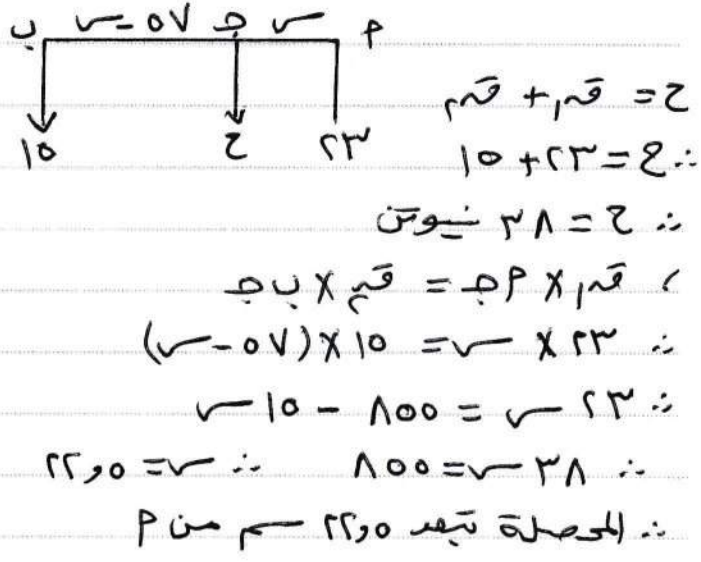 أ س جـ ٥٧ - س ب
٢٣ ح ١٥
ح = ق١ + ق٢
∴ ح = ٢٣ + ١٥
∴ ح = ٣٨ نيوتن
، ق١ × أجـ = ق٢ × ب جـ
∴ ٢٣ × س = ١٥ × (٥٧ - س)
∴ ٢٣ س = ٨٥٥ - ١٥ س
∴ ٣٨ س = ٨٥٥ ∴ س = ٢٢,٥
∴ المحصلة تبعد ٢٢,٥ سم من أ